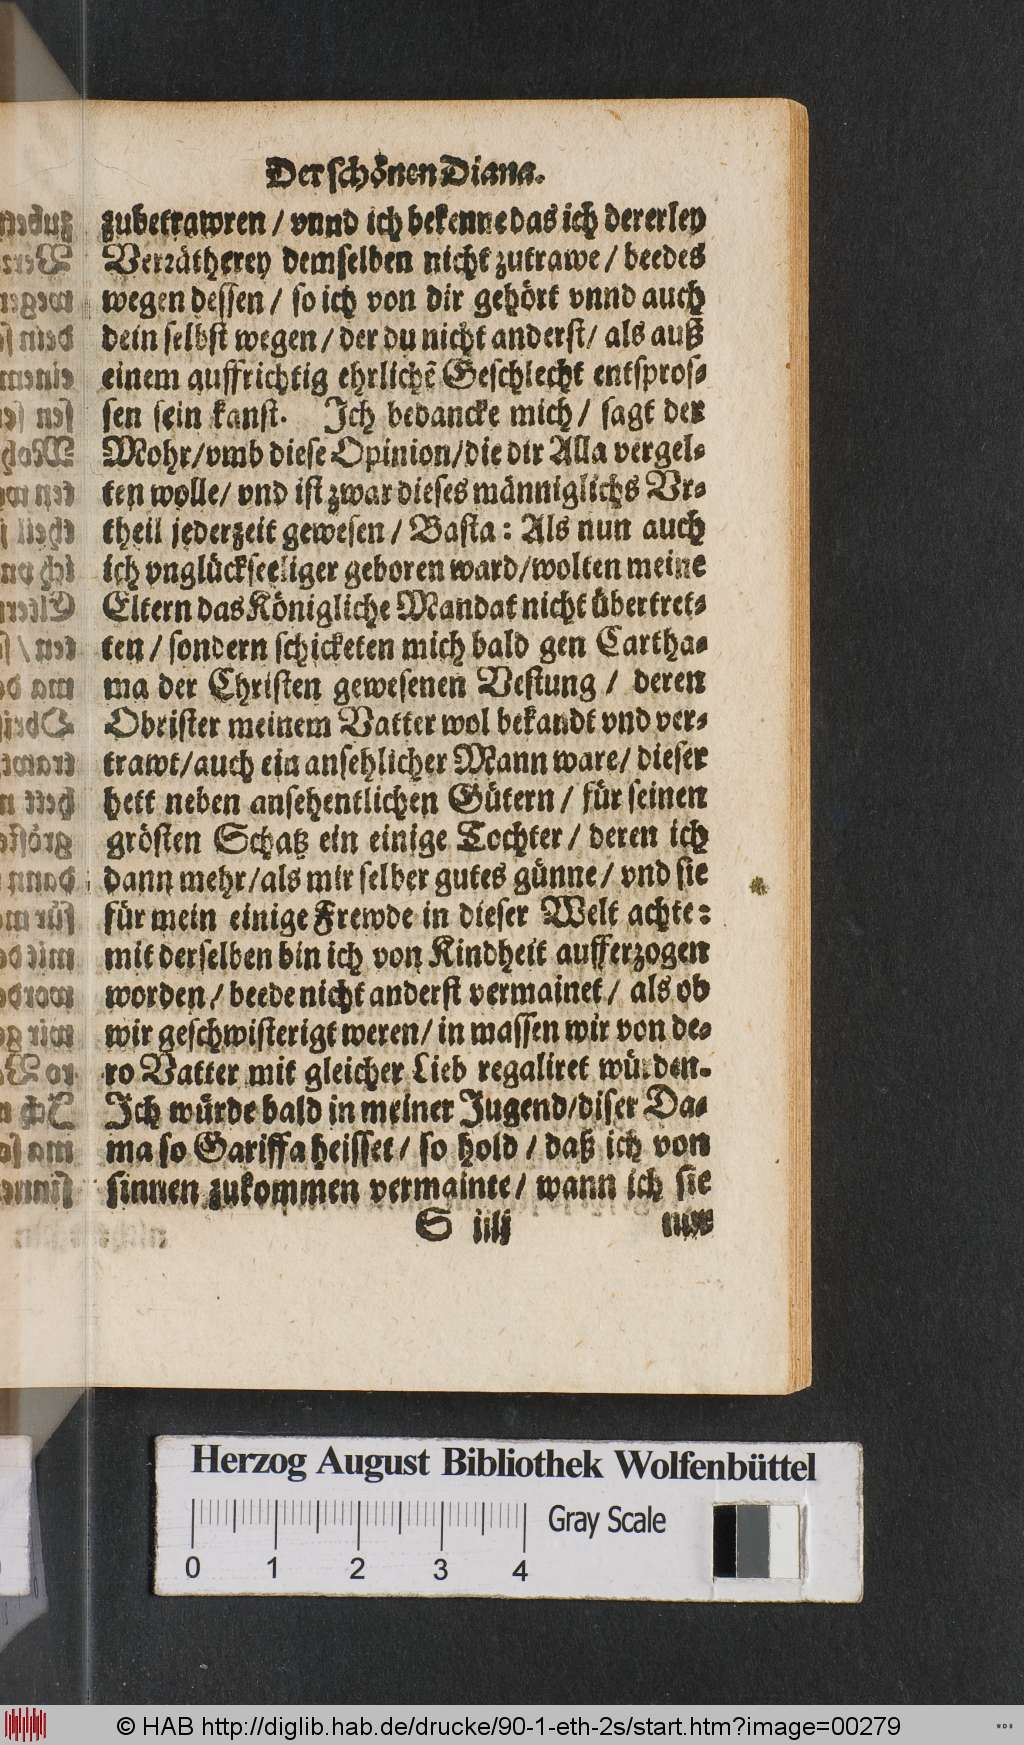 Der schönen Diana.
zubetrawren / vnnd ich bekenne das ich dererley
Verrätherey demselben nicht zutrawe / beedes
wegen dessen / so ich von dir gehört vnnd auch
dein selbst wegen / der du nicht anderst / als auß
einem auffrichtig ehrlichē Geschlecht entspros-
sen sein kanst. Jch bedancke mich / sagt der
Mohr / vmb diese Opinion / die dir Alla vergel-
ten wolle / vnd ist zwar dieses männiglichs Vr-
theil jederzeit gewesen / Basta: Als nun auch
ich vnglückseeliger geboren ward / wolten meine
Eltern das Königliche Mandat nicht übertret-
ten / sondern schicketen mich bald gen Cartha-
ma der Christen gewesenen Vestung / deren
Obrister meinem Vatter wol bekandt vnd ver-
trawt / auch ein ansehlicher Mann ware / dieser
hett neben ansehentlichen Gütern / für seinen
grösten Schatz ein einige Tochter / deren ich
dann mehr / als mir selber gutes günne / vnd sie
für mein einige Frewde in dieser Welt achte:
mit derselben bin ich von Kindheit aufferzogen
worden / beede nicht anderst vermainet / als ob
wir geschwisterigt weren / in massen wir von de-
ro Vatter mit gleicher Lieb regaliret würden.
Jch würde bald in meiner Jugend / diser Da-
ma so Gariffa heisset / so hold / daß ich von
sinnen zukommen vermainte / wann ich sie
S iiij nur
Herzog August Bibliothek Wolfenbüttel
0 1 2 3 4 Gray Scale
© HAB http://diglib.hab.de/drucke/90-1-eth-2s/start.htm?image=00279